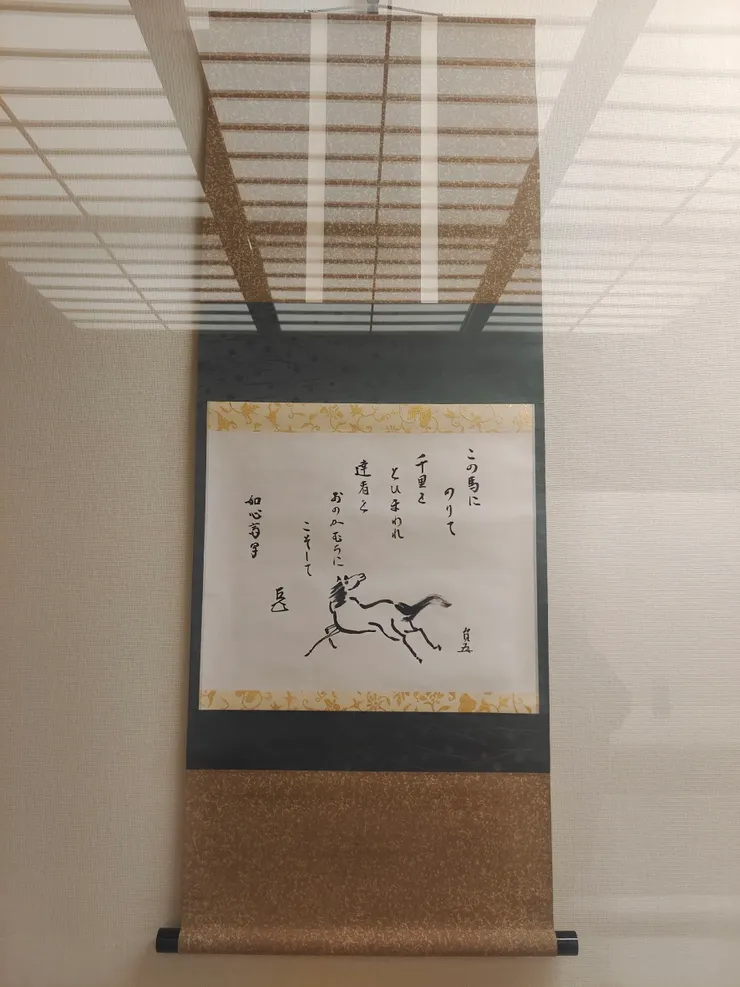 この馬に
のりて
千里を
とひまわれ
達者を
おのかむちに
こそして
如心斎